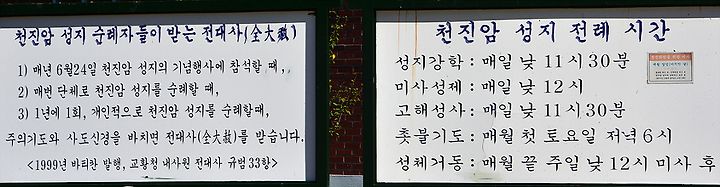 천진암 성지 순례자들이 받는 전대사(全大赦)
1) 매년 6월24일 천진암 성지의 기념행사에 참석할 때,
2) 매번 단체로 천진암 성지를 순례할 때,
3) 1년에 1회, 개인적으로 천진암 성지를 순례할때,
주의기도와 사도신경을 바치면 전대사(全大赦)를 받습니다.
<1999년 바티칸 발행, 교황청 내사원 전대사 규범 33항>
천진암 성지 전례 시간
성지강학 : 매일 낮 11시 30분
미사성제 : 매일 낮 12시
고해성사 : 매일 낮 11시 30분
촛불기도 : 매월 첫 토요일 저녁 6시
성체거동 : 매월 끝 주일 낮 12시 미사 후